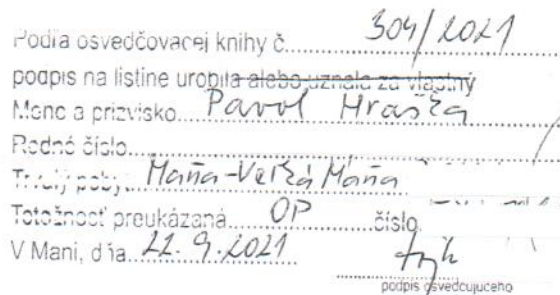 Podľa osvedčovacej knihy č. 304/2021
podpis na listine urobil a alebo uznala za vlastný
Meno a priezvisko Pavol Hraška
Rodné číslo
Trvalý pobyt Maňa-Veľká Maňa
Totožnosť preukázaná OP číslo
V Mani, dňa 22. 9. 2021
podpis osvedčujúceho